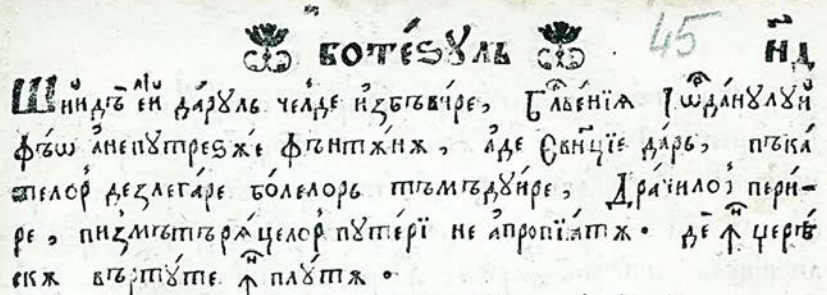 БОТЕ́ЅꙊЛЬ 45 н҃д
Шнйдъ є́й да́рꙋль че́лде и҆збъви́ре, бл҃ве́нїѧ І҆ѡ҆да́нꙋлꙋй
фъѡ҆ а҆непꙋтреѕѫ́ фънтѫ́нѫ, а҆де Свинці́е да́рь, пъка́
телѡр дезлега́ре бо́лелорь тъмъдꙋи́ре, Дра́чилор пери-
ре, пизмътърѧ́целор пꙋте́рї не а҆пропїѧ́тѫ. де ꙟ҆ церѣ́
скѫ вьртꙋ́те ꙟ҆плꙋ́тѫ.